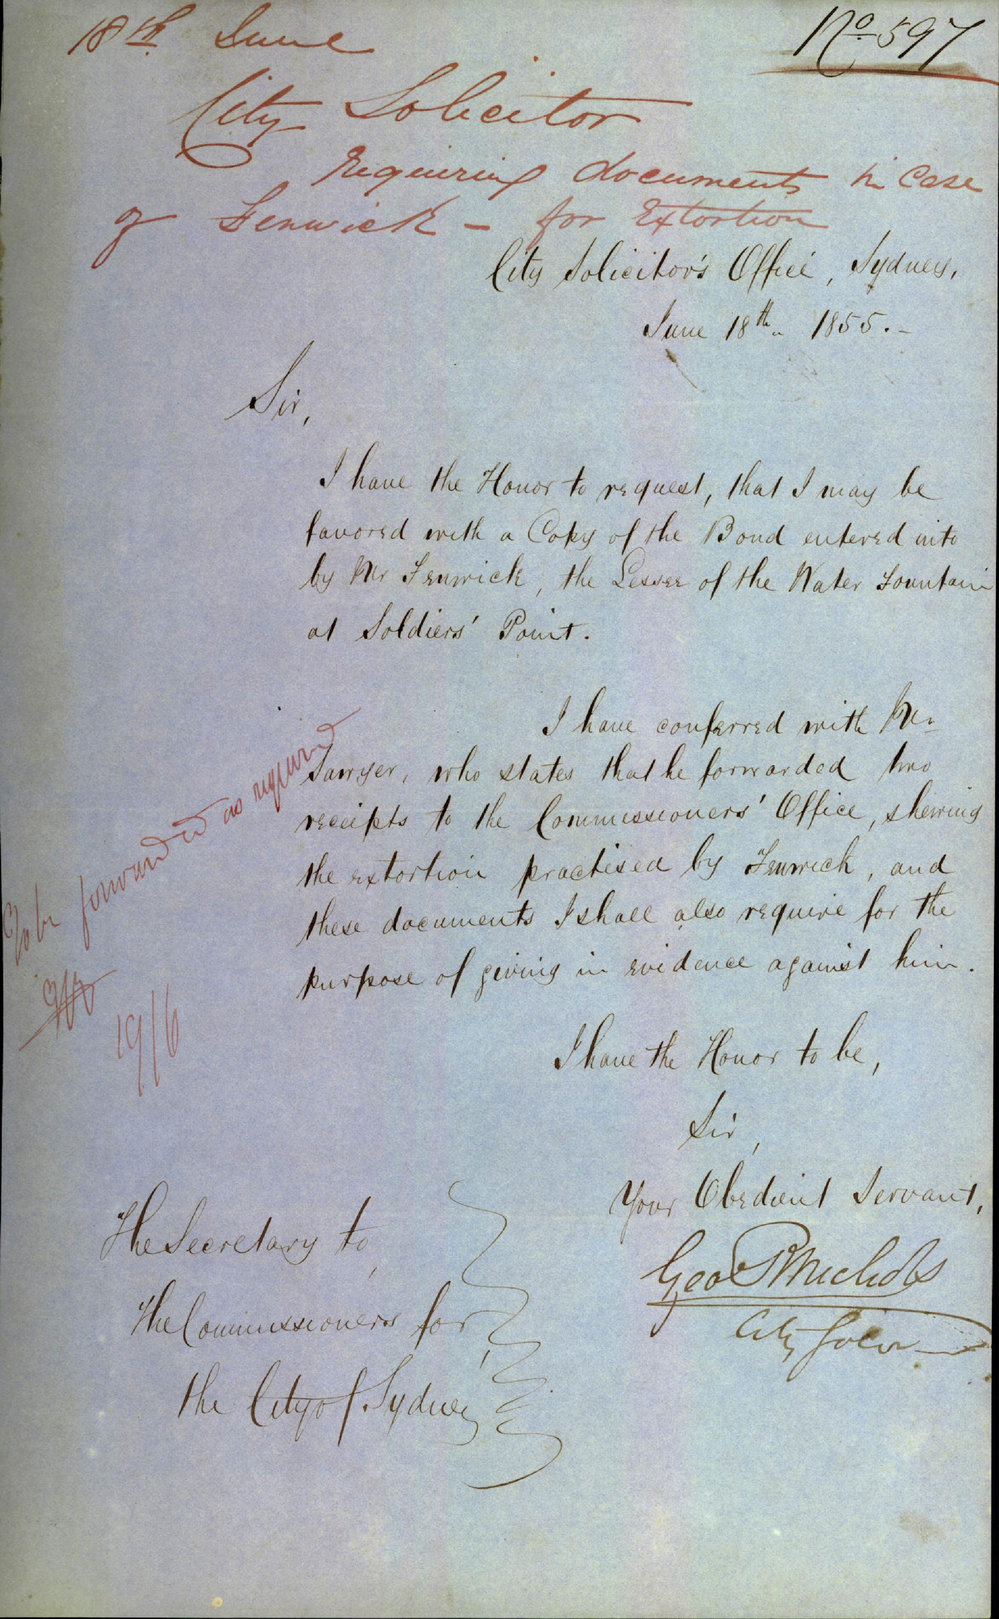 18th June
No 597
City Solicitor
requiring documents in case
of Fenwick - for Extortion
City Solicitor's Office, Sydney,
June 18th 1855.-
Sir,
I have the Honor to request, that I may be
favored with a Copy of the Bond entered into
by Mr Fenwick, the Lessee of the Water Fountain
at Soldiers' Point.
I have conferred with Mr
Sawyer, who states that he forwarded two
receipts to the Commissioners' Office, shewing
the extortion practised by Fenwick, and
these documents I shall also require for the
purpose of giving in evidence against him.
To be forwarded as required
19/6
I have the Honor to be,
Sir,
Your Obedient Servant,
Geo R Nichols
City Solor
The Secretary to
the Commissioners for
the City of Sydney